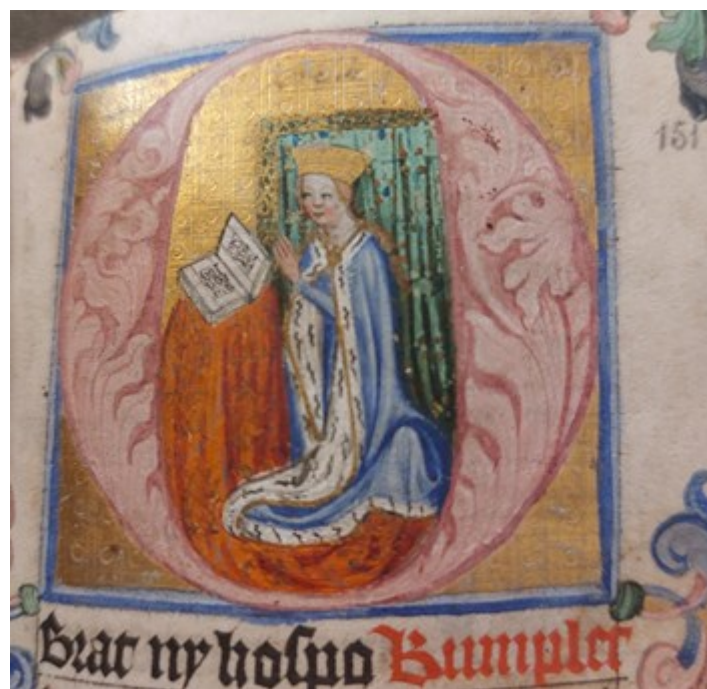 151
Brat ny hospo Rumpler